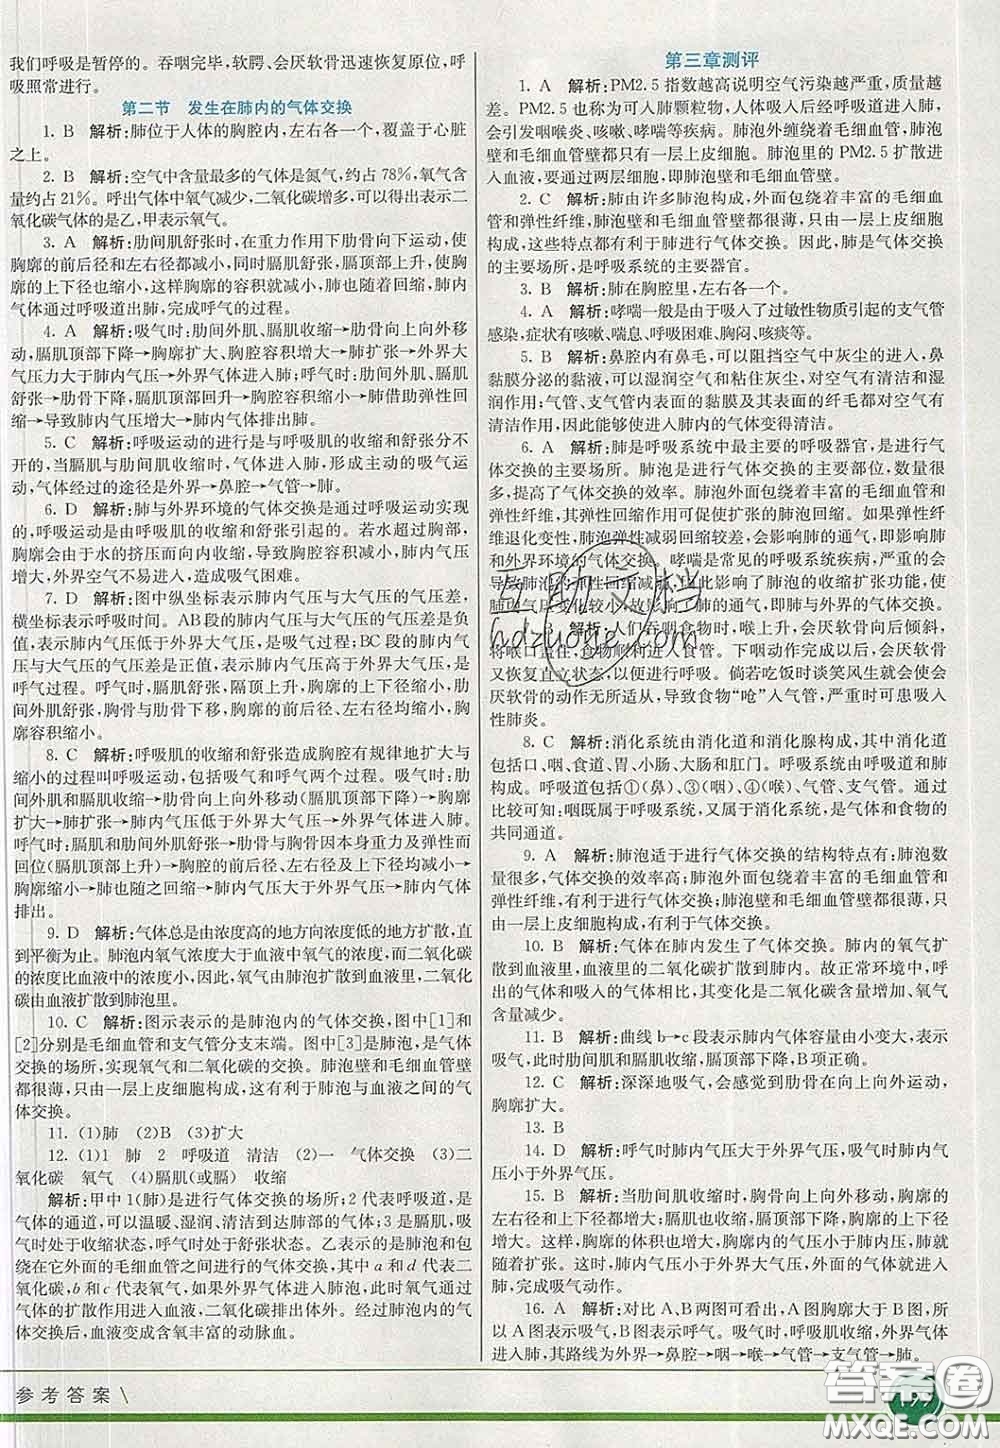 我们呼吸是暂停的。吞咽完毕,软腭、会厌软骨迅速恢复原位,呼
吸照常进行。
第二节 发生在肺内的气体交换
1. B 解析:肺位于人体的胸腔内,左右各一个,覆盖于心脏
之上。
2. B 解析:空气中含量最多的气体是氮气,约占78%,氧气含
量约占21%。呼出气体中氧气减少,二氧化碳增多,可以得出表示
二氧化碳气体的是乙,甲表示氧气。
3. A 解析:肋间肌舒张时,在重力作用下肋骨向下运动,使
胸廓的前后径和左右径都减小,同时膈肌舒张,膈顶部上升,使胸
廓的上下径也缩小,这样胸廓的容积就减小,因此,肺收缩,肺内
气体通过呼吸道出肺,完成呼气的过程。
4. A 解析:吸气时:肋间外肌、膈肌收缩→肋骨向上向外移
动,膈肌顶部下降→胸廓扩大、胸腔容积增大→肺扩张→外界大
气压力大于肺内气压→外界气体进入肺;呼气时:肋间外肌、膈肌
舒张→肋骨下降,膈肌顶部回升→胸腔容积缩小→肺借助弹性回
缩→导致肺内气压增大→肺内气体排出肺。
5. C 解析:呼吸运动的进行是与呼吸肌的收缩和舒张分不
开的,当膈肌与肋间肌收缩时,气体进入肺,形成主动的吸气运
动,气体经过的途径是外界→鼻腔→气管→肺。
6. D 解析:肺与外界环境的气体交换是通过呼吸运动实现
的,呼吸运动是由呼吸肌的收缩和舒张引起的。若水超过胸部,
胸廓会由于水的挤压而向内收缩,导致胸腔容积缩小,肺内气压增
大,外界空气不易进入,造成吸气困难。
7. D 解析:图中纵坐标表示肺内气压与大气压的气压差,
横坐标表示呼吸时间。AB段的肺内气压与大气压的气压差是负
值,表示肺内气压低于外界大气压,是吸气过程;BC段的肺内气
压与大气压的气压差是正值,表示肺内气压高于外界大气压,是
呼气过程。呼气时,膈肌舒张,隔顶上升,胸廓的上下径缩小,肋间
外肌舒张,胸骨与肋骨下移,胸廓的前后径、左右径均缩小,即胸
廓容积缩小。
8. C 解析:呼吸肌的收缩和舒张造成胸腔有规律地扩大与
缩小的过程叫呼吸运动,包括吸气和呼气两个过程。吸气时:肋
间外肌和膈肌收缩→肋骨向上向外移动(膈肌顶部下降)→胸廓
扩大→肺扩张→肺内气压低于外界气压→外界气体进入肺内。
呼气时:膈肌和肋间外肌舒张→肋骨与胸骨因本身重力及弹性而
回位(膈肌顶部上升)→胸腔的前后径、左右径及上下径均减小→
胸廓缩小→肺也随之回缩→肺内气压大于外界气压→肺内气体
排出。
9. D 解析:气体总是由浓度高的地方向浓度低的地方扩散,直
到平衡为止。肺泡内氧气浓度大于与血液中氧气的浓度,而二氧化碳
的浓度比血液中的浓度小,因此,氧气由肺泡扩散到血液里,二氧化
碳由血液扩散到肺泡里。
10. C 解析:图示表示的是肺泡内的气体交换,图中[1]和
[2]分别是毛细血管和支气管分支末端。图中[3]是肺泡,是气体
交换的场所,实现氧气和二氧化碳的交换。肺泡壁和毛细血管壁
都很薄,只由一层上皮细胞构成,这有利于肺泡与血液之间的气
体交换。
11. (1)肺 (2)B (3)扩大
12. (1)1 肺 2 呼吸道 清洁 (2)一 气体交换 (3)二
氧化碳 氧气 (4)膈肌(或膈) 收缩
解析:甲中1(肺)是进行气体交换的场所;2代表呼吸道,是
气体的通道,可以温暖、湿润、清洁到达肺部的气体;3是膈肌,吸
气时处于收缩状态,呼气时处于舒张状态。乙表示的是肺泡和包
绕在它外面的毛细血管之间进行的气体交换,其中a和d代表二
氧化碳,b和c代表氧气,如果外界气体进入肺泡,此时氧气通过
气体的扩散作用进入血液,二氧化碳排出体外。经过肺泡内的气
体交换后,血液变成含氧丰富的动脉血。
第三章测评
1. A 解析:PM2.5指数越高说明空气污染越严重,质量越差。
PM2.5也称为可入肺颗粒物,人体吸入后经呼吸道进入肺,
会引发咽喉炎、咳嗽、哮喘等疾病。肺泡外缠绕着毛细血管,肺泡
壁和毛细血管壁都只有一层上皮细胞。肺泡里的PM2.5扩散进
入血液,要通过两层细胞,即肺泡壁和毛细血管壁。
2. C 解析:肺由许多肺泡构成,外面包绕着丰富的毛细血
管和弹性纤维,肺泡壁和毛细血管壁都很薄,只由一层上皮细胞
构成,这些特点都有利于肺进行气体交换。因此,肺是气体交换
的主要场所,是呼吸系统的主要器官。
3. B 解析:肺在胸腔里,左右各一个。
4. A 解析:哮喘一般是由于吸入了过敏性物质引起的支气管
感染,症状有咳嗽、喘息、呼吸困难、胸闷、咳痰等。
5. B 解析:鼻腔内有鼻毛,可以阻挡空气中灰尘的进入,鼻
黏膜分泌的黏液,可以湿润空气和粘住灰尘,对空气有清洁和湿
润作用;气管、支气管内表面的黏膜及其表面的纤毛都对空气有
清洁作用,因此能够使进入肺内的气体变得清洁。
6. A 解析:肺是呼吸系统中最主要的呼吸器官,是进行气
体交换的主要场所。肺泡是进行气体交换的主要部位,数量很
多,提高了气体交换的效率。肺泡外面包绕着丰富的毛细血管和
弹性纤维,其回缩作用可促使扩张的肺泡回缩。如果弹性纤
维退化变性,使肺泡弹性弱回缩较差,会影响肺的功能,即影响肺
和外界环境的气体交换。哮喘是常见的呼吸系统疾病,严重的会
导致肺泡弹性回缩减弱,因此影响了肺泡的收缩扩张功能,
使肺内气压变化较小,故影响了肺的通气,即肺与外界的气体交换。
7. B 解析:人们吞咽食物时,喉上升,会厌软骨向后倾斜,
将喉口盖住,食物刚而进入食管。下咽动作完成以后,会厌软骨
又恢复直立状态,以便进行呼吸。倘若吃饭时谈笑风生就可能使会
厌软骨的动作无所适从,导致食物“呛”入气管,严重时可患吸入
性肺炎。
8. C 解析:消化系统由消化道和消化腺构成,其中的消化
道包括口、咽、食道、胃、小肠、大肠和肛门。呼吸系统由呼吸道和肺
构成。呼吸道包括①(鼻)、③(咽)、④(喉)、气管、支气管。通过
比较可知:咽既属于呼吸系统,又属于消化系统,是气体和食物的
共同通道。
9. A 解析:肺泡适于进行气体交换的结构特点有:肺泡数
量很多,气体交换的效率高;肺泡外面包绕着丰富的毛细血管和
弹性纤维,有利于进行气体交换。肺泡壁和毛细血管壁都很薄,
只由一层上皮细胞构成,有利于气体交换。
10. B 解析:气体在肺内发生了气体交换。肺内的氧气扩
散到血液里,血液里的二氧化碳扩散到肺内。故正常环境中,呼
出的气体和吸入的气体相比,其变化是二氧化碳含量增加、氧气
含量减少。
11. B 解析:曲线b→c段表示肺内气体容量由小变大,表示
吸气,此时肋间肌和膈肌收缩,膈顶部下降,B项正确。
12. C 解析:深深地吸气,会感觉到肋骨在向上向外运动,
胸廓扩大。
13. B
14. D 解析:呼气时肺内气压大于外界气压,吸气时肺内气
压小于外界气压。
15. B 解析:当肋间肌收缩时,胸骨向上向外移动,胸廓的
左右径和前后径都增大;膈肌也收缩,膈顶部下降,使胸廓的上下
径增大。这样,胸廓的体积增大,胸廓内的气压小于肺内气压,肺
随之扩张。这时,肺内气压小于肺外的气压,外面的气体就进入
肺,完成吸气动作。
16. A 解析:对比A、B两图可看出,A图胸廓大于B图,所
以A图表示吸气,B图表示呼气。吸气时,呼吸肌收缩,外界气体
进入肺,其路线为外界→鼻腔→咽→喉→气管→支气管→肺。
参考答案
互助文档
hdzuoye.com
答案圈
MXQE.COM